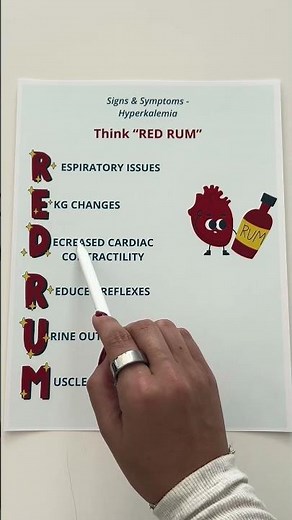 Signs & Symptoms -
Hyperkalemia
Think "RED RUM"
RESPIRATORY ISSUES
EKG CHANGES
DECREASED CARDIAC
CONTRACTILITY
REDUCED REFLEXES
URINE OUT
MUSCLE
RUM